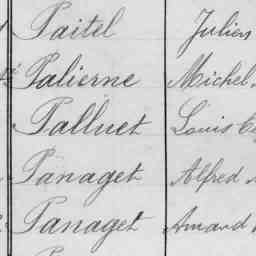 Paitel Julien
Palierne Michel
Palluet Louis
Panaget Alfred
Panaget Amand